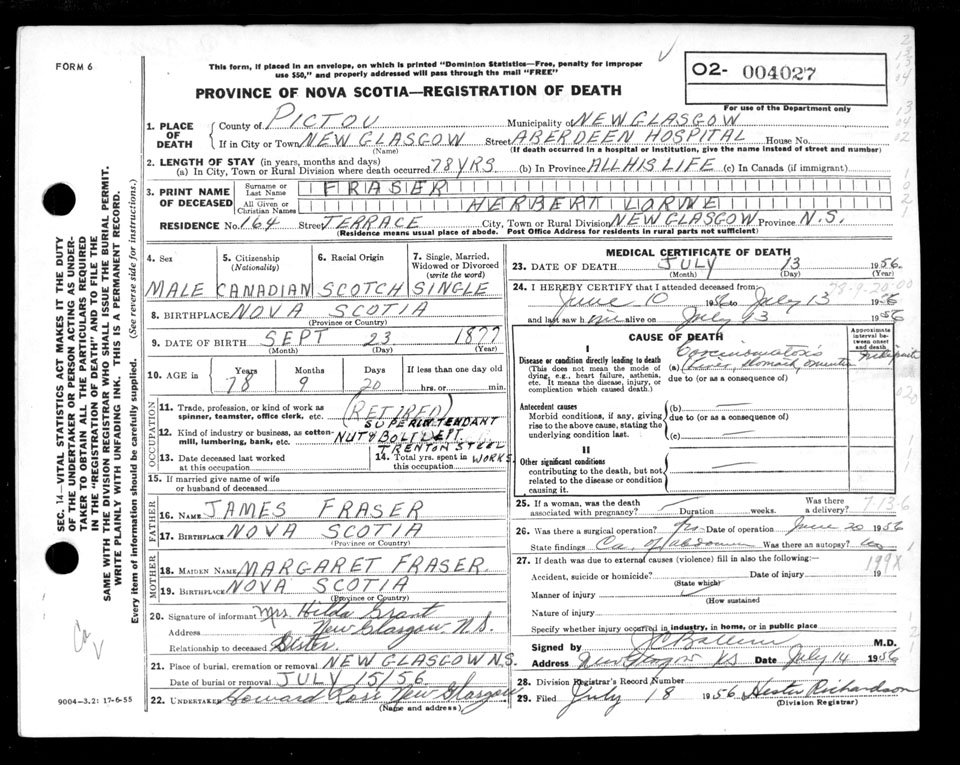 FORM 6
This form, if placed in an envelope, on which is printed "Dominion Statistics—Free, penalty for improper
use $50," and properly addressed will pass through the mail "FREE"
02- 004027
PROVINCE OF NOVA SCOTIA—REGISTRATION OF DEATH
For use of the Department only
1. PLACE OF DEATH County of PICTOU Municipality of NEW GLASGOW
If in City or Town NEW GLASGOW Street ABERDEEN HOSPITAL House No.
(Name) (If death occurred in a hospital or institution, give the name instead of street and number)
2. LENGTH OF STAY (in years, months and days)
(a) In City, Town or Rural Division where death occurred 78 YRS. (b) In Province ALL HIS LIFE (c) In Canada (if immigrant)
3. PRINT NAME OF DECEASED Surname or Last Name FRASER
All Given or Christian Names HERBERT LORNE
RESIDENCE No. 164 Street TERRACE City, Town or Rural Division NEW GLASGOW Province N.S.
(Residence means usual place of abode. Post Office Address for residents in rural parts not sufficient)
4. Sex 5. Citizenship (Nationality) 6. Racial Origin 7. Single, Married, Widowed or Divorced (write the word)
MALE CANADIAN SCOTCH SINGLE
8. BIRTHPLACE NOVA SCOTIA
(Province or Country)
9. DATE OF BIRTH SEPT 23 1877
(Month) (Day) (Year)
10. AGE in Years Months Days If less than one day old
78 9 20 hrs. or min.
OCCUPATION
11. Trade, profession, or kind of work as spinner, teamster, office clerk, etc. (RETIRED) SUPERINTENDANT
12. Kind of industry or business, as cotton-mill, lumbering, bank, etc. NUT & BOLT DEPT. TRENTON STEEL WORKS
13. Date deceased last worked at this occupation
14. Total yrs. spent in this occupation
15. If married give name of wife or husband of deceased
FATHER
16. NAME JAMES FRASER
17. BIRTHPLACE NOVA SCOTIA
(Province or Country)
MOTHER
18. MAIDEN NAME MARGARET FRASER
19. BIRTHPLACE NOVA SCOTIA
(Province or Country)
20. Signature of informant Mrs. Hilda Grant
Address New Glasgow, N.S.
Relationship to deceased Sister
21. Place of burial, cremation or removal NEW GLASGOW N.S.
Date of burial or removal JULY 15/56
22. UNDERTAKER Howard Ross New Glasgow
(Name and address)
MEDICAL CERTIFICATE OF DEATH
23. DATE OF DEATH JULY 13 1956
(Month) (Day) (Year)
24. I HEREBY CERTIFY that I attended deceased from
June 10 1956 to July 13 1956
and last saw him alive on July 13 1956
CAUSE OF DEATH
Approximate interval between onset and death
I
Disease or condition directly leading to death
(This does not mean the mode of dying, e.g., heart failure, asthenia, etc. It means the disease, injury, or complication which caused death.)
(a) Carcinomatosis
liver, stomach, omentum
due to (or as a consequence of)
Antecedent causes
Morbid conditions, if any, giving rise to the above cause, stating the underlying condition last.
(b) —
due to (or as a consequence of)
(c) —
II
Other significant conditions
contributing to the death, but not related to the disease or condition causing it.
25. If a woman, was the death associated with pregnancy? Duration weeks. Was there a delivery?
26. Was there a surgical operation? Yes Date of operation June 20 1956
State findings Ca. of abdomen Was there an autopsy? no
27. If death was due to external causes (violence) fill in also the following:—
199X
Accident, suicide or homicide? Date of injury 19
(State which)
Manner of injury
(How sustained)
Nature of injury
Specify whether injury occurred in industry, in home, or in public place
Signed by M.D.
Address New Glasgow NS Date July 14 1956
28. Division Registrar's Record Number
29. Filed July 18 1956 Hester Richardson
(Division Registrar)
SEC. 14—VITAL STATISTICS ACT MAKES IT THE DUTY
OF THE UNDERTAKER OR PERSON ACTING AS UNDER-
TAKER TO OBTAIN ALL THE PARTICULARS REQUIRED
IN THE "REGISTRATION OF DEATH" AND TO FILE THE
SAME WITH THE DIVISION REGISTRAR WHO SHALL ISSUE THE BURIAL PERMIT.
WRITE PLAINLY WITH UNFADING INK. THIS IS A PERMANENT RECORD.
Every item of information should be carefully supplied. (See reverse side for instructions.)
Ca
9004—3.2: 17-6-55